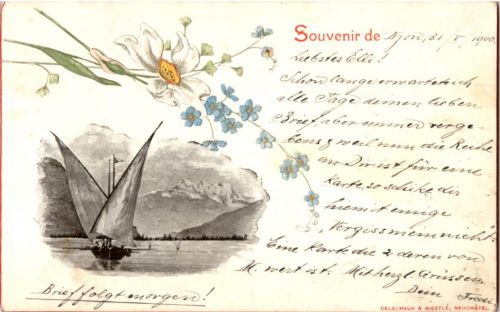 Souvenir de Nyon, 31/V. 1900.
Liebstes Elli!
Schon lange erwarte ich
alle Tage deinen lieben
Brief, aber immer verge-
bens & weil nun die Reihe
an Dir ist für eine
Karte, so schicke dir
hiemit einige
Vergissmeinnicht.
Eine Karte die 2 deren von
M. wert ist. Mit herzl. Grüssen
Dein Fredi.
Brief folgt morgen!
DELACHAUX & NIESTLÉ, NEUCHÂTEL